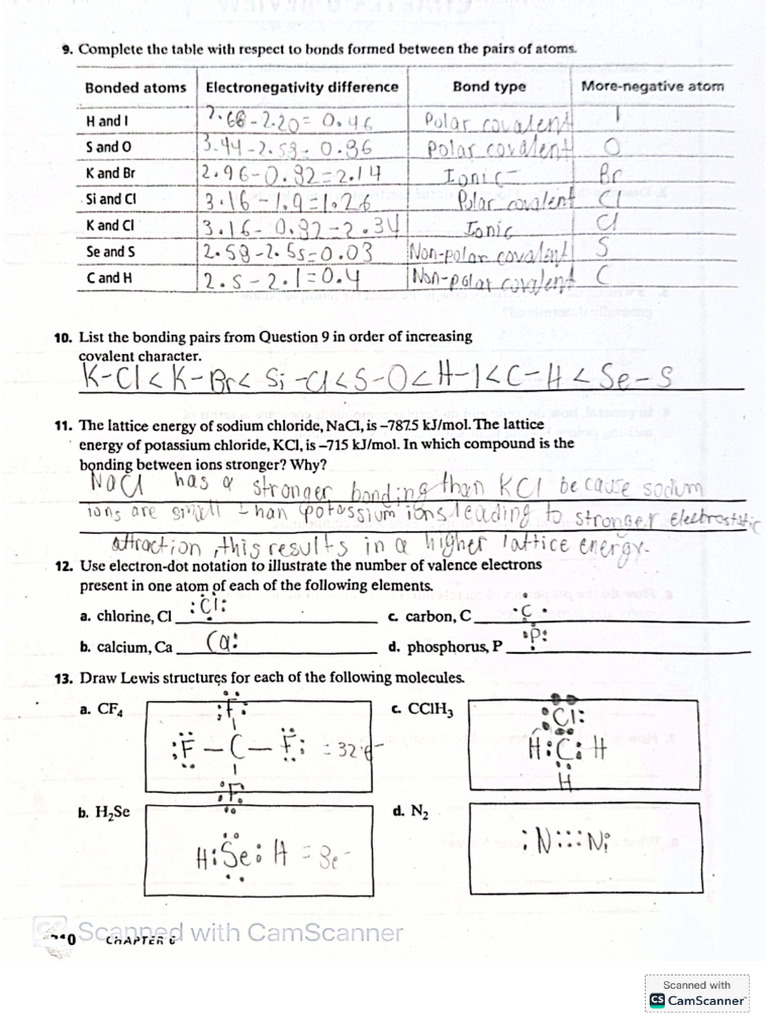 9. Complete the table with respect to bonds formed between the pairs of atoms.
Bonded atoms Electronegativity difference Bond type More-negative atom
H and I 2.66-2.20= 0.46 Polar covalent I
S and O 3.44-2.58- 0.86 Polar covalent O
K and Br 2.96-0.82=2.14 Ionic Br
Si and Cl 3.16-1.9=1.26 Polar covalent Cl
K and Cl 3.16- 0.82-2.34 Ionic Cl
Se and S 2.58-2.55=0.03 Non-polar covalent S
C and H 2.5-2.1=0.4 Non-polar covalent C
10. List the bonding pairs from Question 9 in order of increasing
covalent character.
K-Cl<K-Br< Si-Cl<S-O<H-I<C-H<Se-S
11. The lattice energy of sodium chloride, NaCl, is –787.5 kJ/mol. The lattice
energy of potassium chloride, KCl, is –715 kJ/mol. In which compound is the
bonding between ions stronger? Why?
NaCl has a stronger bonding than KCl because sodum
ions are small than potassium ions leading to stronger electrostatic
attraction, this results in a higher lattice energy.
12. Use electron-dot notation to illustrate the number of valence electrons
present in one atom of each of the following elements.
a. chlorine, Cl :Cl: c. carbon, C ·C·
b. calcium, Ca Ca: d. phosphorus, P P:
13. Draw Lewis structures for each of the following molecules.
a. CF₄ c. CClH₃
:F: Cl:
:F — C — F: = 32 e- H:C:H
:F: H
b. H₂Se d. N₂
H:Se:H = 8e- :N:::N:
Scanned with CamScanner
CHAPTER 6
Scanned with
CS CamScanner